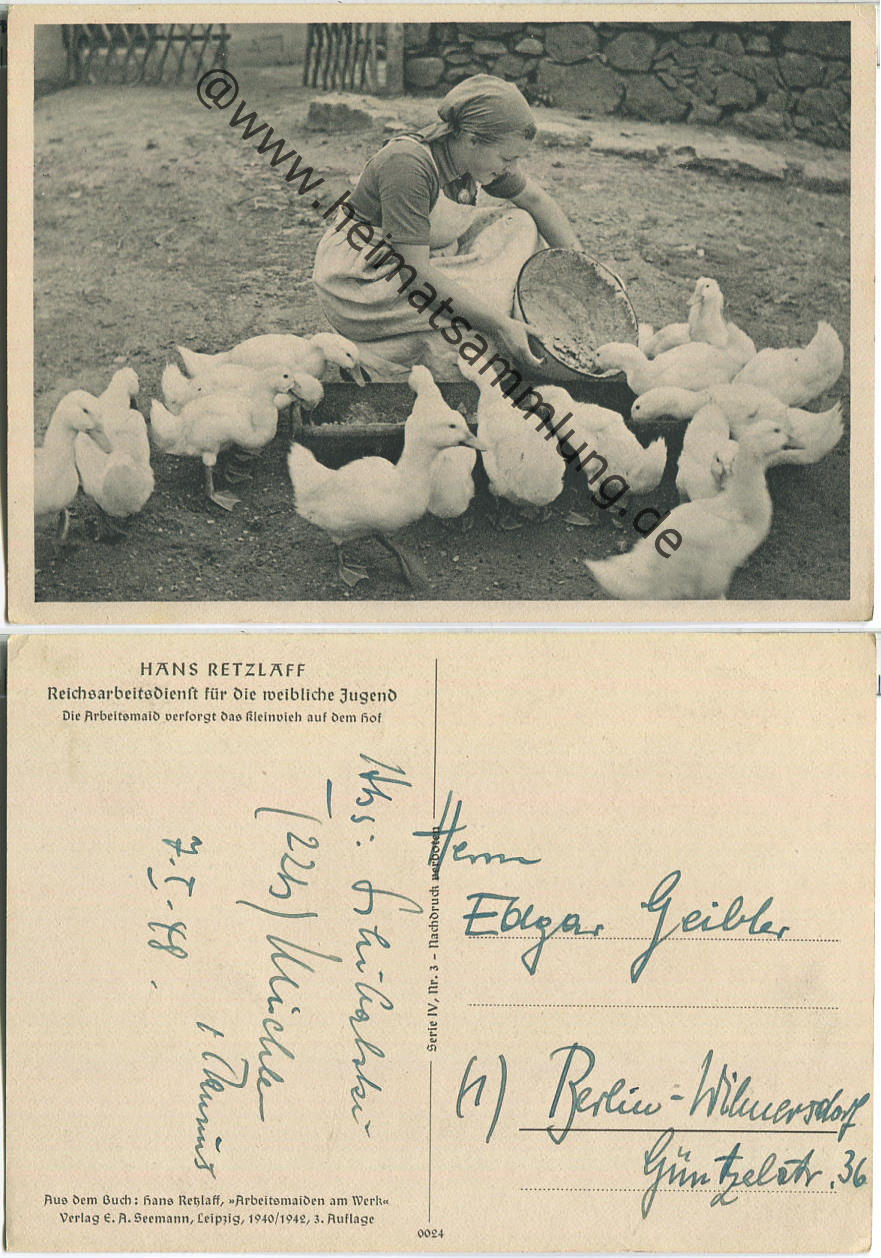 @www.heimatsammlung.de
HANS RETZLAFF
Reichsarbeitsdienst für die weibliche Jugend
Die Arbeitsmaid versorgt das Kleinvieh auf dem Hof
Abs:
(22b)
7.5.48.
Aus dem Buch: Hans Retzlaff, »Arbeitsmaiden am Werk«
Verlag E. A. Seemann, Leipzig, 1940/1942, 3. Auflage
Serie IV, Nr. 3 – Nachdruck verboten
0024
Herrn
Edgar Geibler
(1) Berlin-Wilmersdorf
Güntzelstr. 36